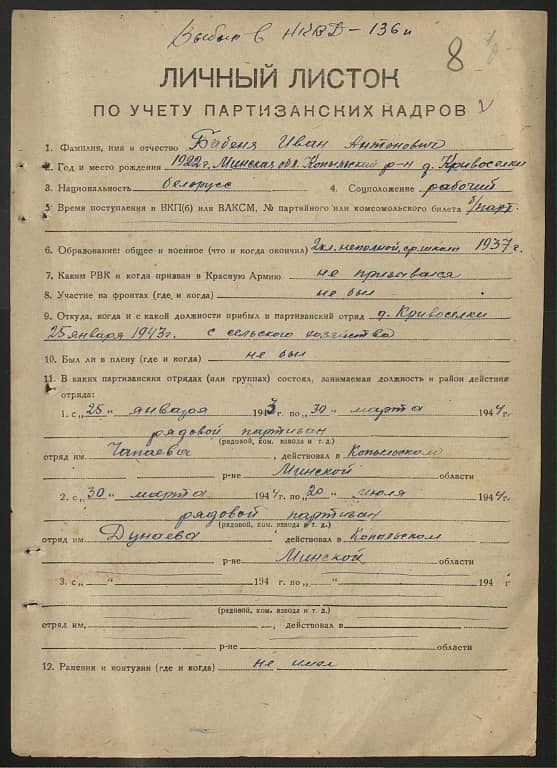 Выбыл в НКВД – 136 и
8
ЛИЧНЫЙ ЛИСТОК
ПО УЧЕТУ ПАРТИЗАНСКИХ КАДРОВ
1. Фамилия, имя и отчество Бабеня Иван Антонович
2. Год и место рождения 1922 г. Минская обл. Копыльский р-н д. Кривоселки
3. Национальность белорусс 4. Соцположение рабочий
5. Время поступления в ВКП(б) или ВЛКСМ, № партийного или комсомольского билета б/парт.
6. Образование: общее и военное (что и когда окончил) кл. неполной ср. школы 1937 г.
7. Каким РВК и когда призван в Красную Армию не призывался
8. Участие на фронтах (где и когда) не был
9. Откуда, когда и с какой должности прибыл в партизанский отряд д. Кривоселки
25 января 1943 г. с сельского хозяйства
10. Был ли в плену (где и когда) не был
11. В каких партизанских отрядах (или группах) состоял, занимаемая должность и район действия
отряда:
1. с „25“ января 1943 г. по „30“ марта 1944 г.
рядовой партизан
(рядовой, ком. взвода и т. д.)
отряд им. Чапаева, действовал в Копыльском
р-не Минской области
2. с „30“ марта 1944 г. по „20“ июля 1944 г.
рядовой партизан
(рядовой, ком. взвода и т. д.)
отряд им. Дунаева, действовал в Копыльском
р-не Минской области
3. с „ “ 194 г. по „ “ 194 г
(рядовой, ком. взвода и т. д.)
отряд им. , действовал в
р-не области
12. Ранения и контузии (где и когда) не имел